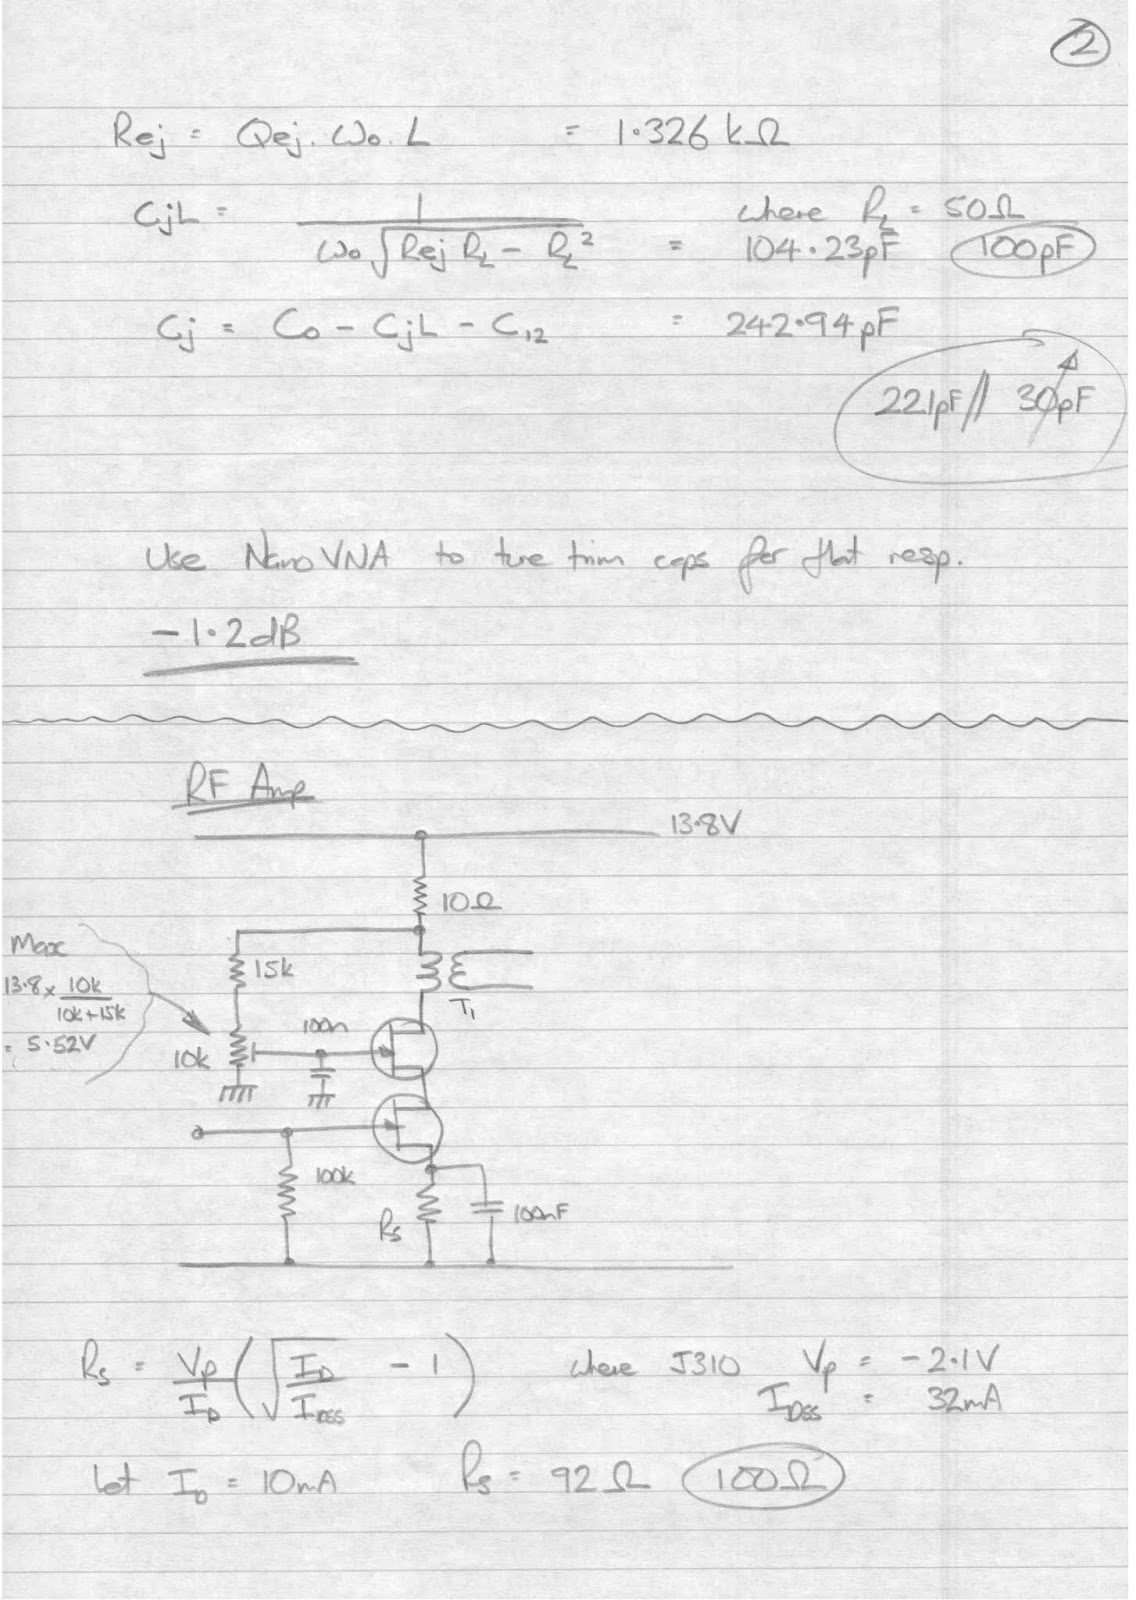 2
Rej = Qej. ω₀. L = 1.326 kΩ
CjL = 1 / ω₀√(Rej R_L - R_L²) where R_L = 50Ω
= 104.23pF 100pF
Cj = C₀ - CjL - C₁₂ = 242.94pF
221pF // 30pF
Use NanoVNA to tune trim caps for flat resp.
-1.2dB
RF Amp
13.8V
10Ω
Max
13.8 x 10k / 10k+15k
= 5.52V
15k
T₁
100n
10k
100k
Rs
100nF
Rs = Vp/I_D (√(I_D/I_DSS) - 1) where J310 Vp = -2.1V
I_DSS = 32mA
Let I_D = 10mA Rs = 92Ω 100Ω